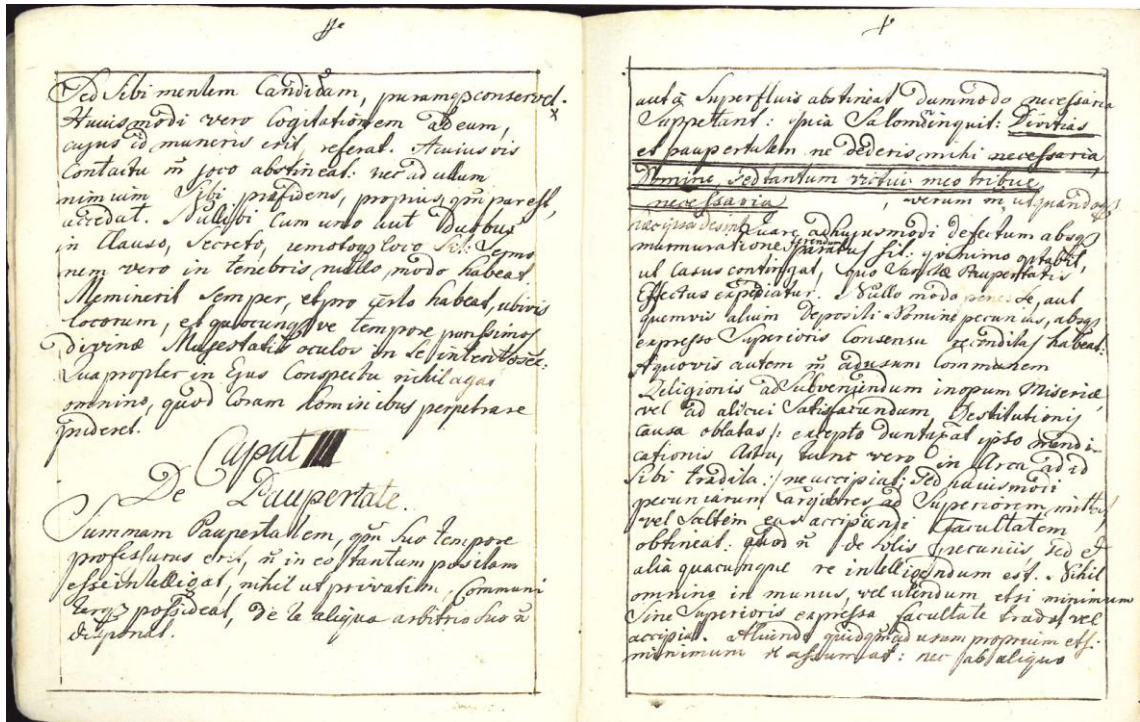 Sed Sibi mentem Candidam, puramqȝ conservet.
Huiusmodi vero Cogitationem ad eum,
cujus id muneris erit, referat. A cuiusvis
Contactu in joco abstineat: nec ad ullum
nimium Sibi præfidens, propius, qm̄ par est,
accedat. Nullibi Cum uno aut Duobus
in Clauso, Secreto, remotoqȝ loco Sit: Sermo
nem vero in tenebris nullo modo habeat.
Meminerit Semper, et pro certo habeat, ubivis
locorum, et quocunqȝ ve tempore purissimos
divinæ Majestatis oculos in Se intentos
Quapropter in Ejus Conspectu nihil agas
omnino, quod Coram hominibus perpetrare
puderet.
Caput III
De Paupertate.
Summam Paupertatem, qm̄ Suo tempore
professurus erit, n̄ in eo tantum positam
esse intelligat, nihil ut privatim, Communi
terqȝ possideat, De re aliqua arbitrio Suo n̄
disponat.
Superfluis abstineat dummodo necessaria
Suppetant: quia Salomon inquit: Divitias
et paupertatem ne dederis mihi necessaria,
Domine, sed tantum victui meo tribue
necessaria, verum m̄ ut quandoqȝ
nec ipsa desint Quare ad hujusmodi defectum absqȝ
murmuratione ferendum paratus Sit: quinimo optabit,
ut Casus contingat, quo Sanctæ Paupertatis
Effectus expediatur. Nullo modo penes Se, aut
quemvis alium Depositi Nomine pecunias, absqȝ
expresso Superioris Consensu reconditas habeat:
A quovis autem m̄ ad usum Communem
Religionis ad Subveniendum inopum Miseriæ
vel ad alicui Satisfaciundum Restitutionis
causa oblatas /: excepto duntaxat ipso mendi
cationis Actu, tunc vero in Arca ad id
Sibi tradita :/ ne accipiat: Sed hauismodi
pecuniarum ad Superiorem
vel Saltem eas accipiendi Facultatem
obtineat. quod n̄ de Solis pecuniis, Sed et
alia quacunque re intelligendum est. Nihil
omnino in munus, vel utendum etsi minimum
Sine Superioris expressa facultate tradat vel
accipiat. Aliunde quidqm̄ ad usum proprium etsi
minimum n̄ assumat: nec ab aliquo